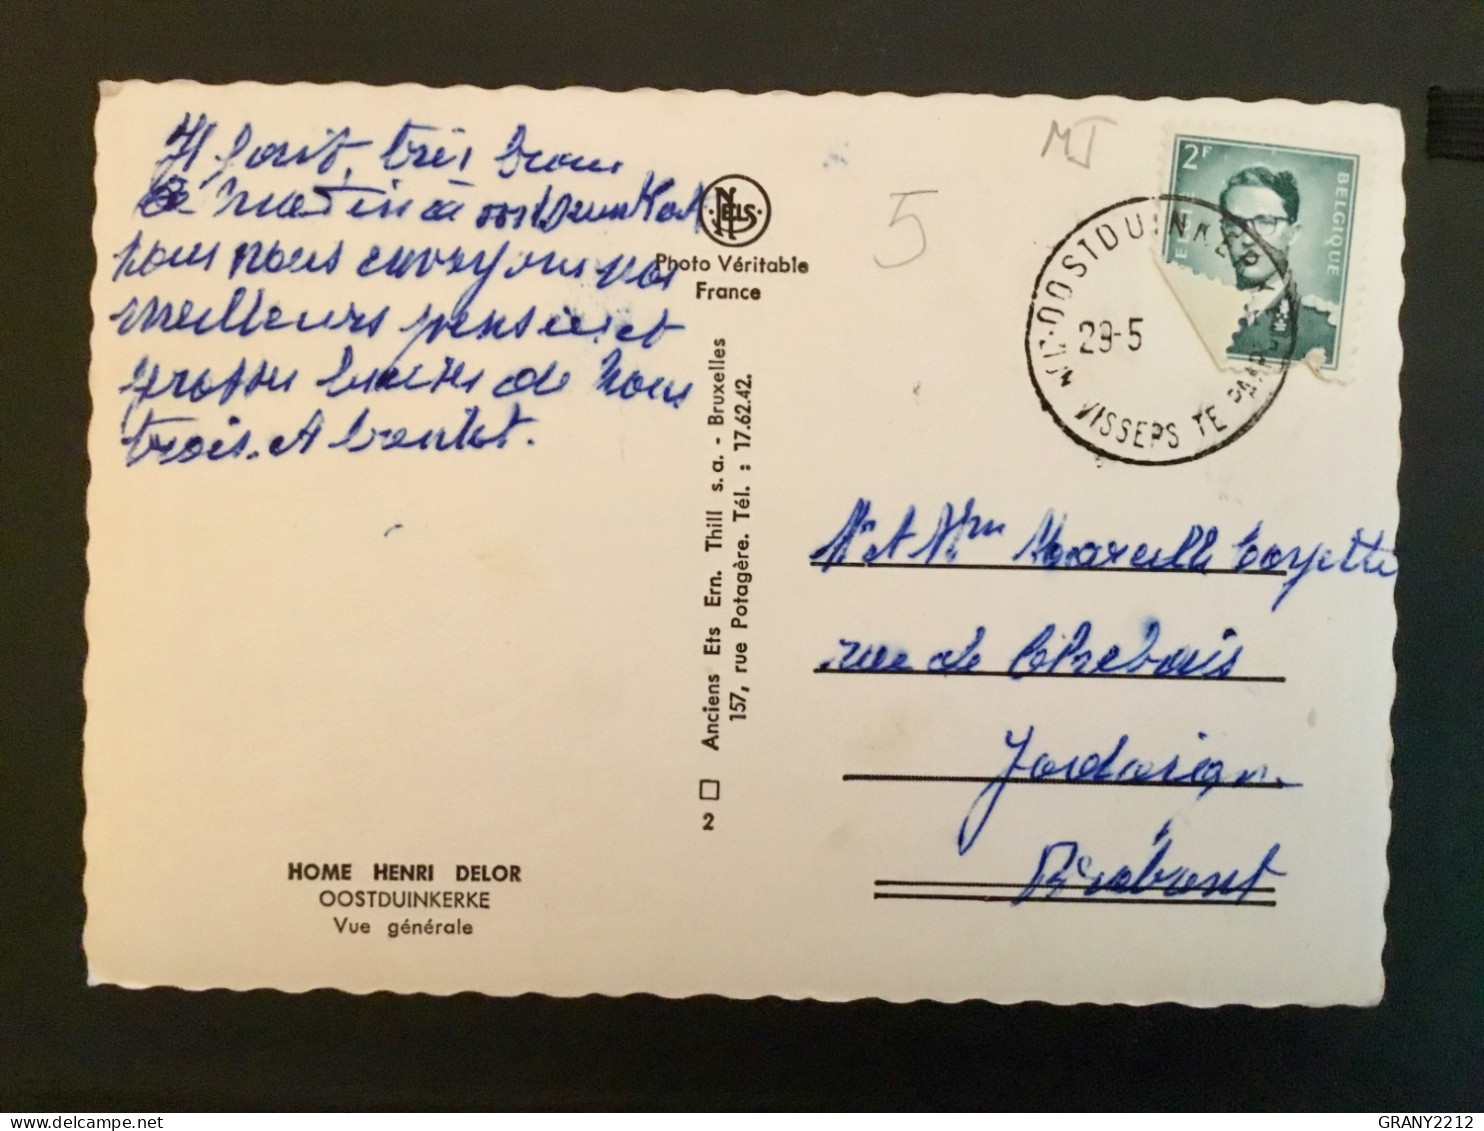 Il fait très beau
le matin à oostDuunKerk
nous nous envoyons nos
meilleurs pensées et
grosses baises de nous
trois. A bientot.
NELS
Photo Véritable
France
Anciens Ets Ern. Thill s.a. - Bruxelles
157, rue Potagère. Tél. : 17.62.42.
2
HOME HENRI DELOR
OOSTDUINKERKE
Vue générale
5
MJ
2F
BELGIQUE
OOSTDUINKERKE
29-5
VISSERS TE PAARD
Mr et Mme Marcelle
rue de Chebais
Jodoigne
Brabant
GRANY2212